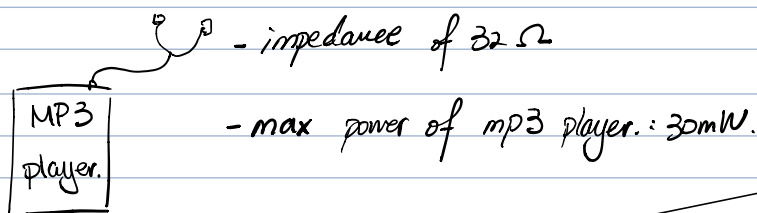 - impedance of 32 Ω
MP3
player.
- max power of mp3 player. : 30mW.